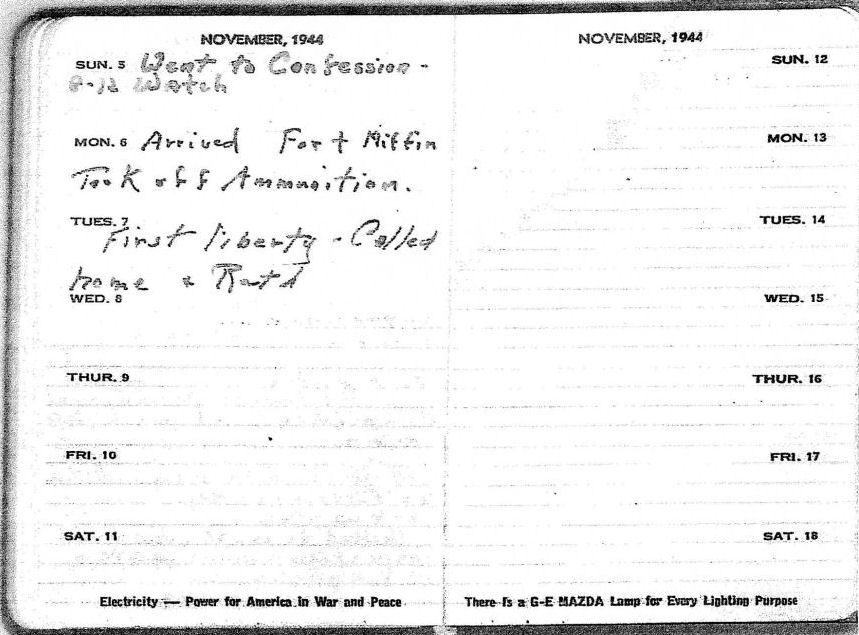 NOVEMBER, 1944
SUN. 5 Went to Confession -
8-12 Watch
MON. 6 Arrived Fort Miffin
Took off Ammunition.
TUES. 7
First liberty - Called
home &
WED. 8
THUR. 9
FRI. 10
SAT. 11
Electricity — Power for America in War and Peace
NOVEMBER, 1944
SUN. 12
MON. 13
TUES. 14
WED. 15
THUR. 16
FRI. 17
SAT. 18
There Is a G-E MAZDA Lamp for Every Lighting Purpose